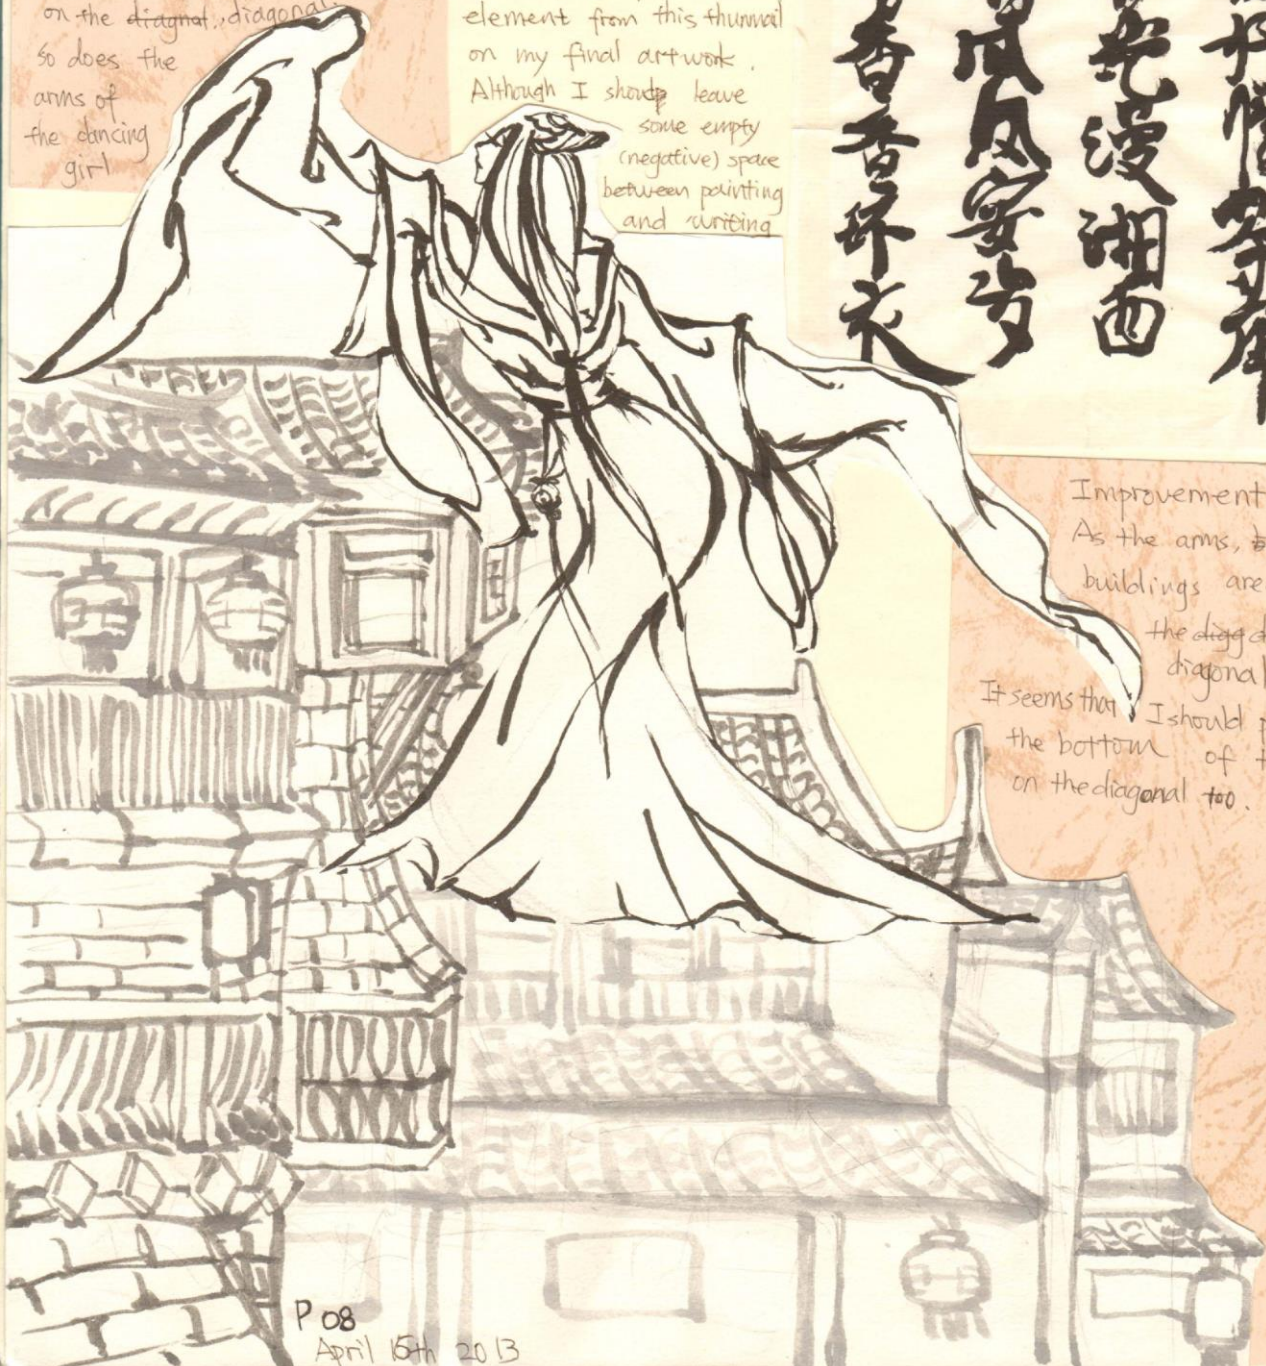 on the diagnal, diagonal.
so does the
arms of
the dancing
girl
element from this thumnail
on my final artwork.
Although I should leave
some empty
(negative) space
between painting
and writing
漫湘西
安
香香环衣
Improvement
As the arms,
buildings are
the
diagonal
It seems that I should
the bottom of
on the diagonal too.
P 08
April 15th 2013